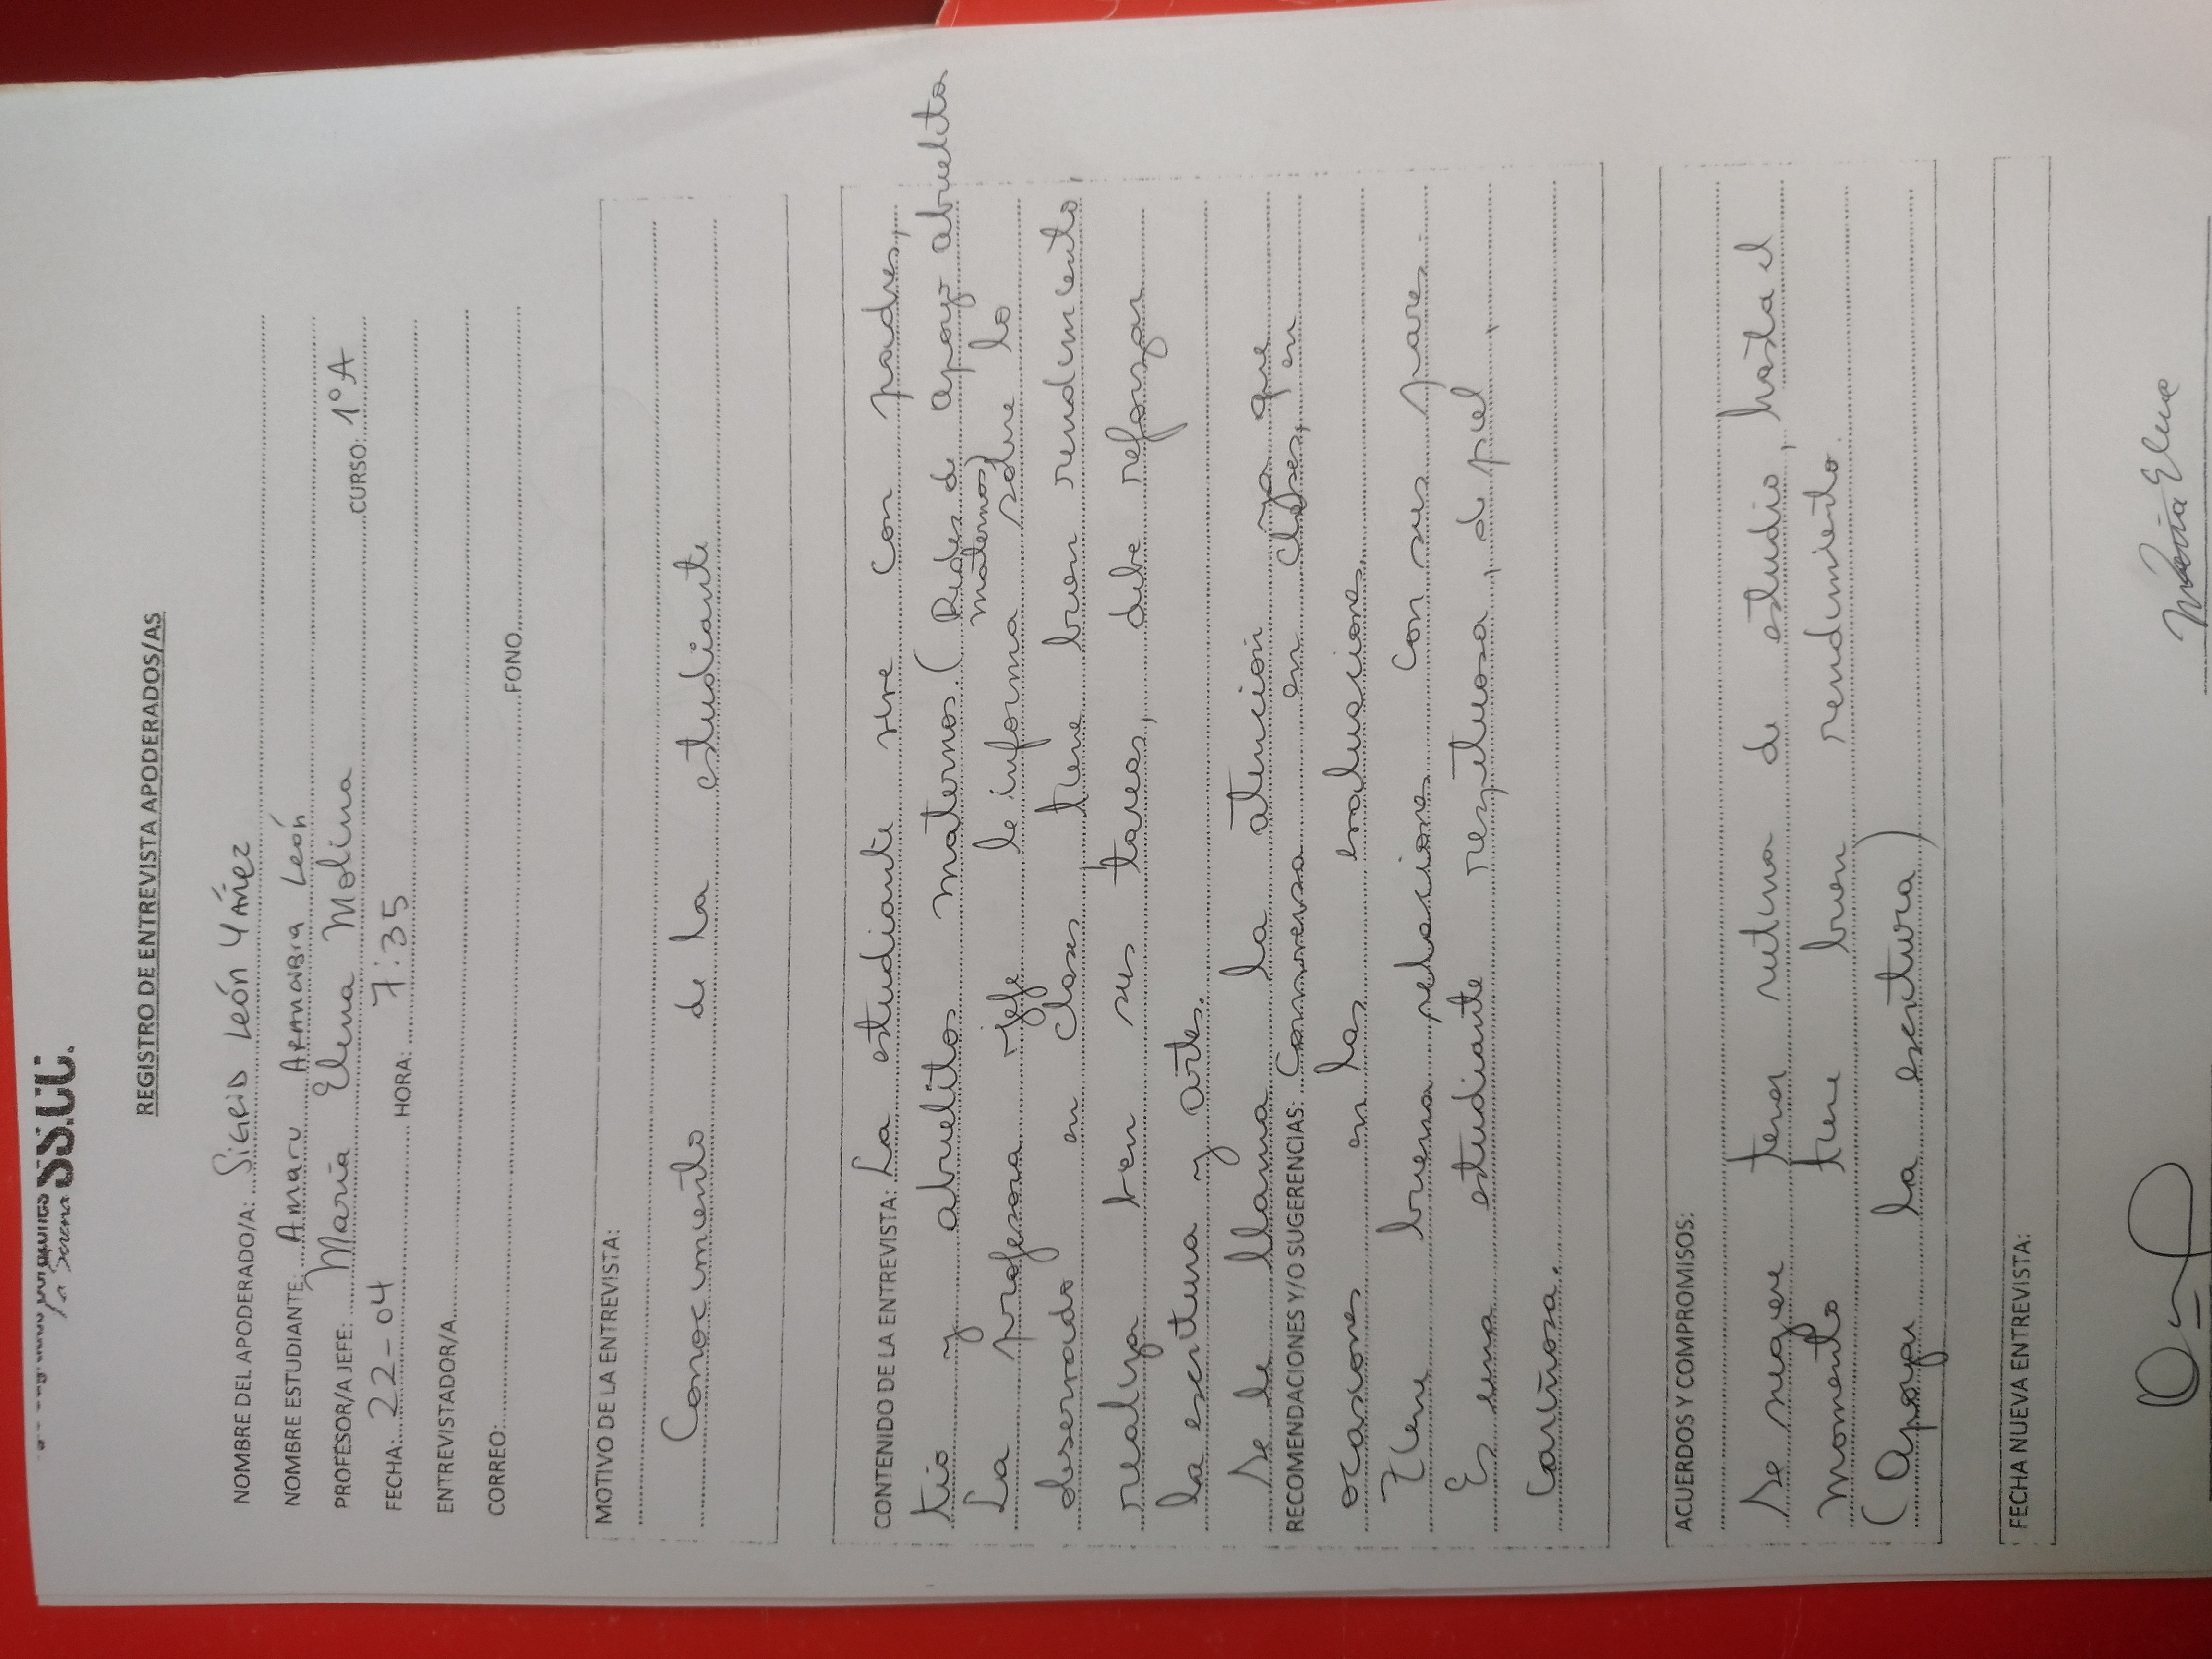 La Serena SS.CC.
REGISTRO DE ENTREVISTA APODERADOS/AS
NOMBRE DEL APODERADO/A: Sigrid León Yáñez
NOMBRE ESTUDIANTE: Amaru Aranabia León
PROFESOR/A JEFE: María Elena Molina CURSO: 1°A
FECHA: 22-04 HORA: 7:35
ENTREVISTADOR/A
CORREO: FONO
MOTIVO DE LA ENTREVISTA:
Conocimiento de la estudiante
CONTENIDO DE LA ENTREVISTA: La estudiante vive con padres,
tío y abuelitos maternos. (Redes de apoyo abuelitos
maternos)
La profesora jefe le informa sobre lo
observado en clases tiene buen rendimiento,
realiza bien sus tareas, debe reforzar
la escritura y artes.
Se le llama la atención ya que
RECOMENDACIONES Y/O SUGERENCIAS: Conversa en clases, en
ocasiones en las evaluaciones.
Tiene buena relaciones con sus pares
Es una estudiante respetuosa, de piel,
Cariñosa.
ACUERDOS Y COMPROMISOS:
Se sugiere tener rutina de estudio, hasta el
momento tiene buen rendimiento.
(Apoyar la escritura)
FECHA NUEVA ENTREVISTA:
María Elena